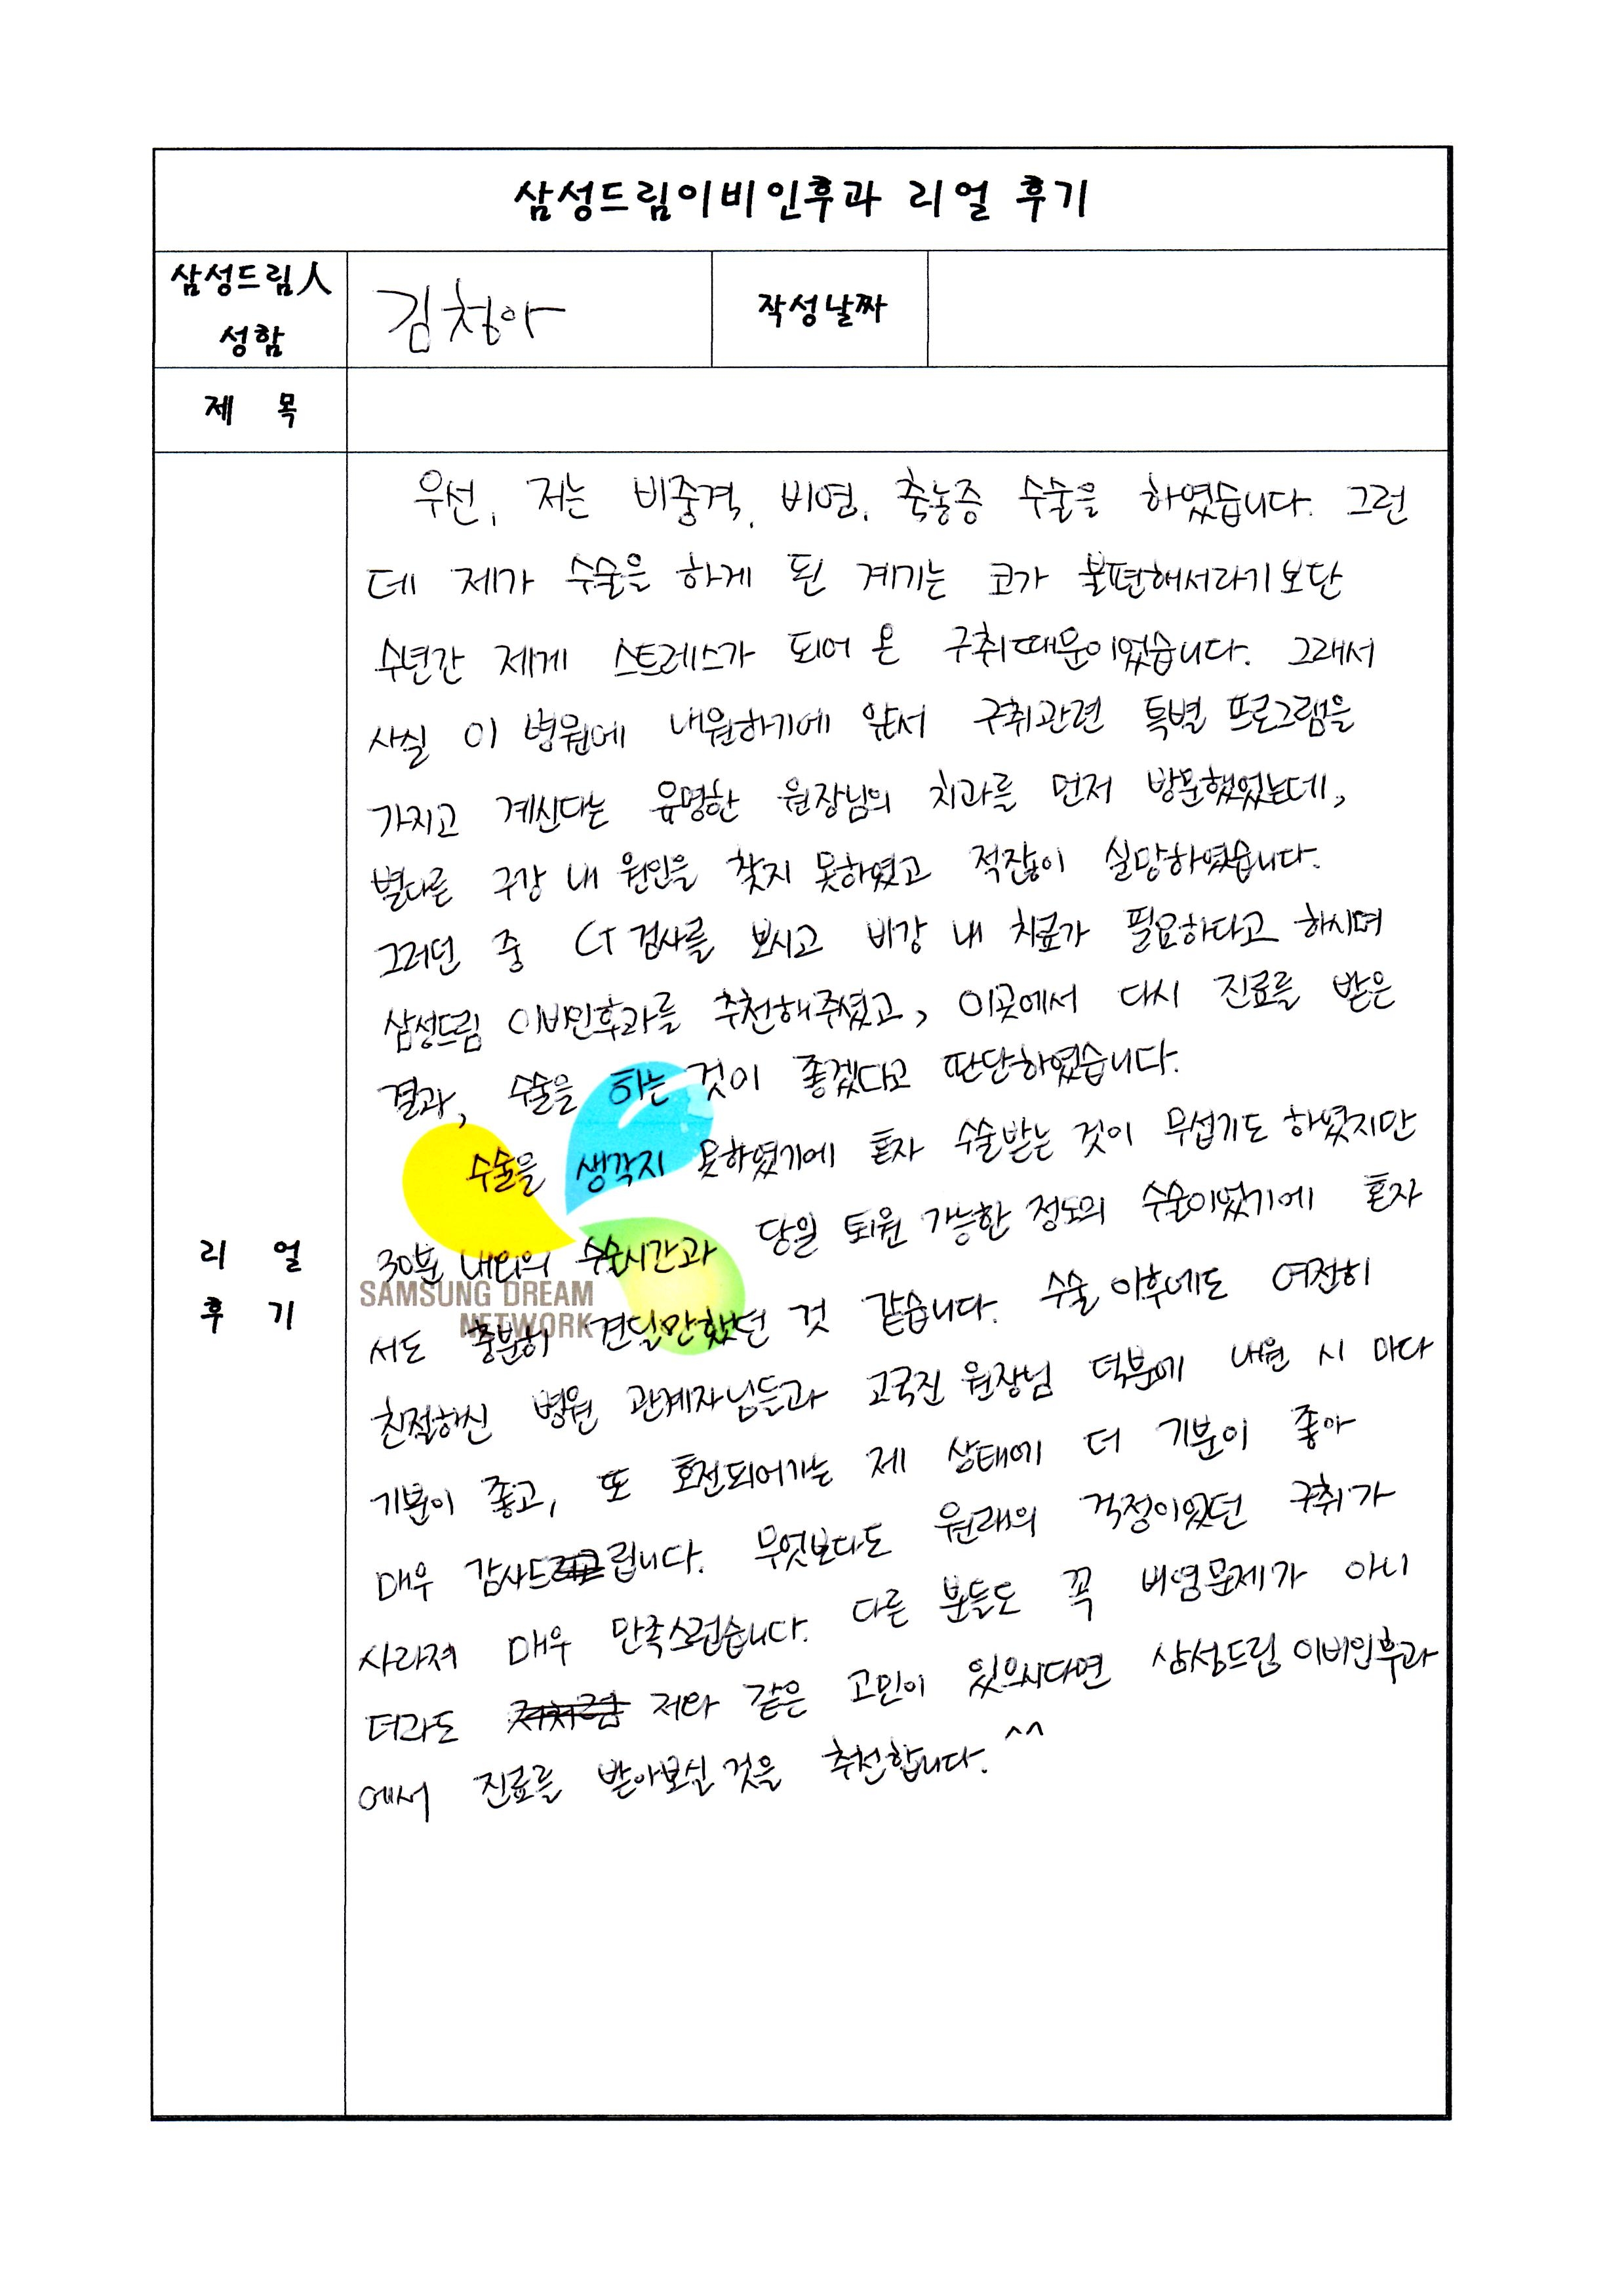 삼성드림이비인후과 리얼 후기
삼성드림人
성함
김청아
작성날짜
제 목
우선, 저는 비중격, 비염, 축농증 수술을 하였습니다. 그런
데 제가 수술을 하게 된 계기는 코가 불편해서라기보단
수년간 제게 스트레스가 되어 온 구취때문이었습니다. 그래서
사실 이 병원에 내원하기에 앞서 구취관련 특별 프로그램을
가지고 계신다는 유명한 원장님의 치과를 먼저 방문했었는데,
별다른 구강 내 원인을 찾지 못하였고 적잖이 실망하였습니다.
그러던 중 CT 검사를 보시고 비강 내 치료가 필요하다고 하시며
삼성드림 이비인후과를 추천해주셨고, 이곳에서 다시 진료를 받은
결과, 수술을 하는 것이 좋겠다고 판단하였습니다.
수술을 생각지 못하였기에 혼자 수술받는 것이 무섭기도 하였지만
30분 내외의 수술시간과 당일 퇴원 가능한 정도의 수술이었기에 혼자
서도 충분히 견딜만했던 것 같습니다. 수술 이후에도 여전히
친절하신 병원 관계자님들과 고국진 원장님 덕분에 내원 시 마다
기분이 좋고, 또 호전되어가는 제 상태에 더 기분이 좋아
매우 감사드립니다. 무엇보다도 원래의 걱정이었던 구취가
사라져 매우 만족스럽습니다. 다른 분들도 꼭 비염문제가 아니
더라도 저와 같은 고민이 있으시다면 삼성드림 이비인후과
에서 진료를 받아보실 것을 추천합니다. ^^
리 얼
후 기
SAMSUNG DREAM
NETWORK